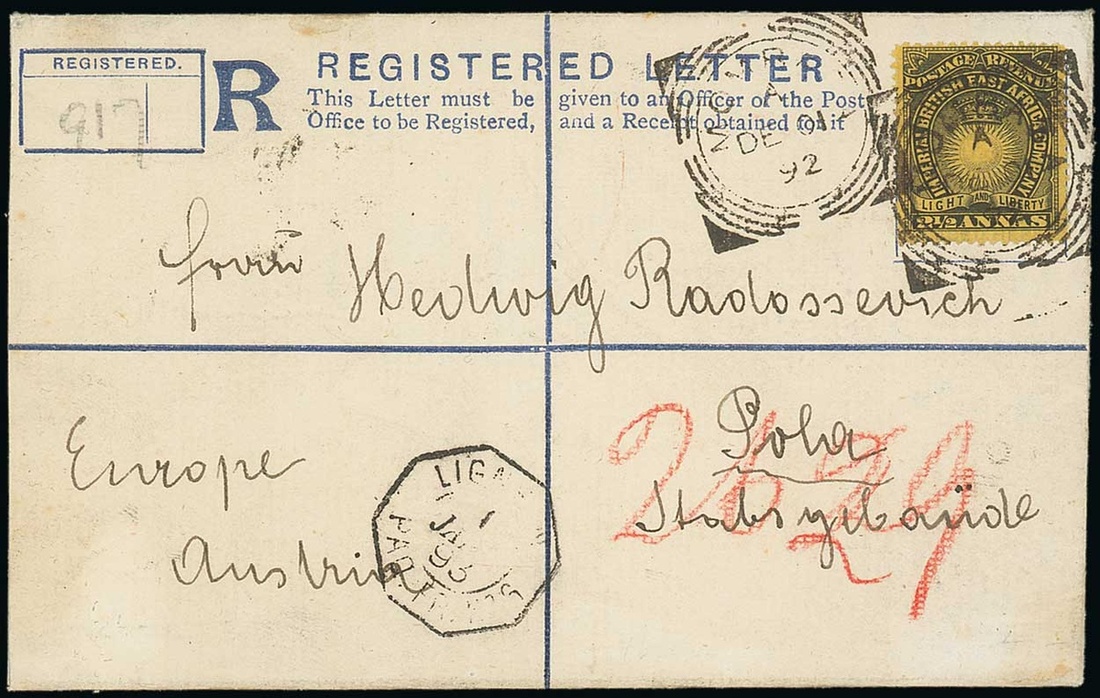 REGISTERED.
917
R
REGISTERED LETTER
This Letter must be given to an Officer of the Post
Office to be Registered, and a Receipt obtained for it
A
DE
92
POSTAGE REVENUE
IMPERIAL BRITISH EAST AFRICA COMPANY
LIGHT AND LIBERTY
2½ ANNAS
Frau Hedwig Radossevich
Pola
Stabsgebäude
Europe
Austria
LIGNE
1
JANV
93
PAQ. FR.